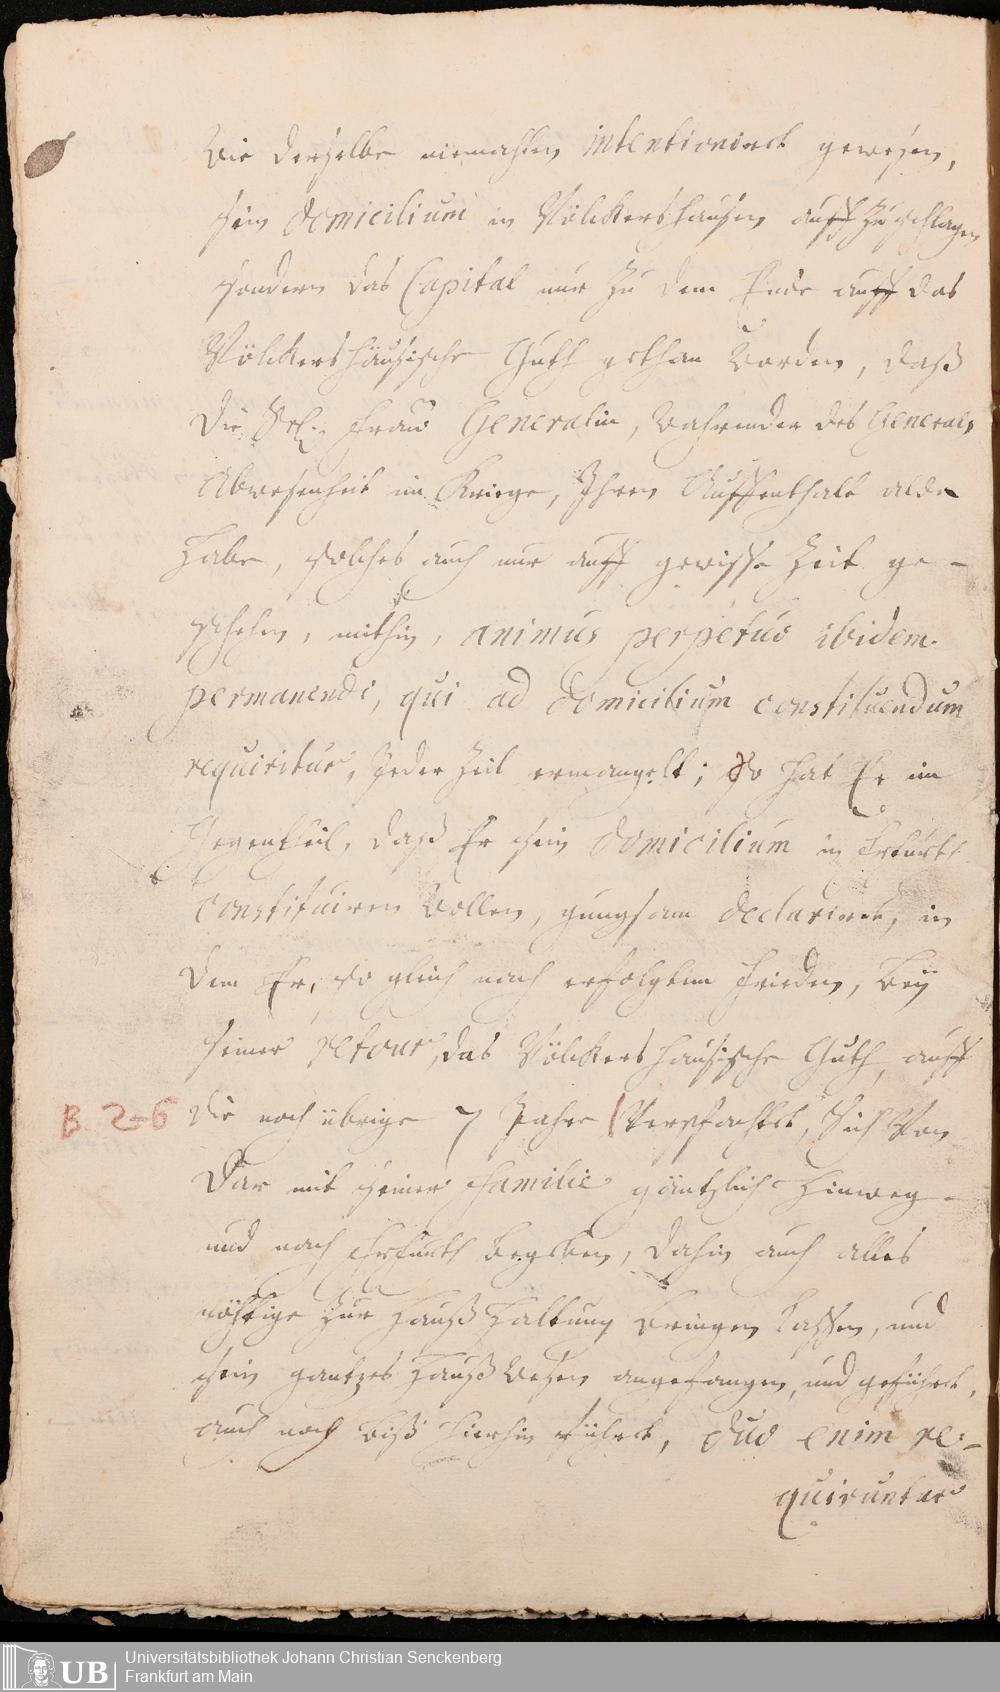 Wie derselbe niemahlen intentionirt gewesen,
sein domicilium in Völckershausen auff zu schlagen
sondern das Capital nur zu dem Ende auff das
Völckershäusische Guth gethan worden, daß
die Seel. Frau Generalin, wehrender des Generals
Abwesenheit im Kriege, Ihren Auffenthalt alda
habe, solches auch nur auff gewisse Zeit ge-
schehen, mithin, animus perpetuo ibidem
permanendi, qui ad domicilium constituendum
requiritur, jeder Zeit ermangelt; So hat Er im
Gegentheil, daß Er sein domicilium in Erfurth
constituiren wollen, gungsam declarirt, in
dem Er, so gleich nach erfolgtem Frieden, bey
seiner retour, das Völckershausische Guth, auff
B. 2-6 die noch übrige 7 Jahre verpfachtet, Sich von
dar mit seiner Familie gäntzlich hinweg-
und nach Erfurth begeben, dahin auch alles
nöthige zur Hauß Haltung bringen laßen, und
sein gantzes Haußwesen angefangen, und geführt,
auch noch biß hierhin führet, duo enim re-
quiruntur
UB Universitätsbibliothek Johann Christian Senckenberg
Frankfurt am Main